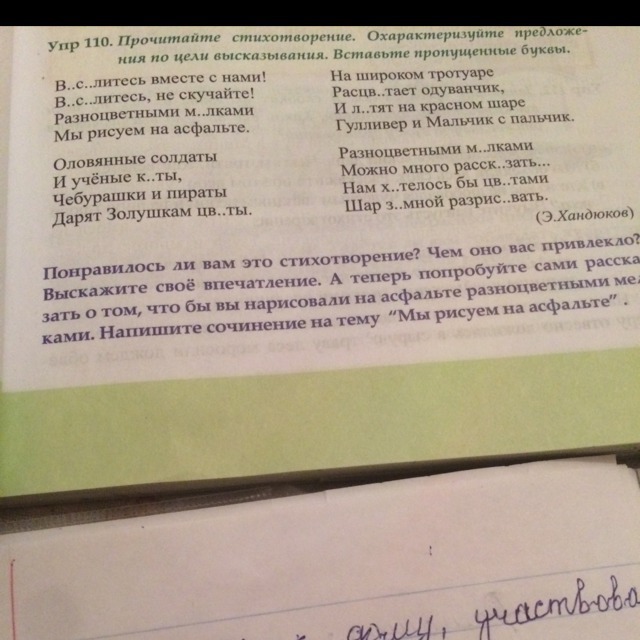 Упр 110. Прочитайте стихотворение. Охарактеризуйте предложе-
ния по цели высказывания. Вставьте пропущенные буквы.
В..с..литесь вместе с нами!
В..с..литесь, не скучайте!
Разноцветными м..лками
Мы рисуем на асфальте.
Оловянные солдаты
И учёные к..ты,
Чебурашки и пираты
Дарят Золушкам цв..ты.
На широком тротуаре
Расцв..тает одуванчик,
И л..тят на красном шаре
Гулливер и Мальчик с пальчик.
Разноцветными м..лками
Можно много расск..зать...
Нам х..телось бы цв..тами
Шар з..мной разрис..вать.
(Э.Хандюков)
Понравилось ли вам это стихотворение? Чем оно вас привлекло?
Выскажите своё впечатление. А теперь попробуйте сами расска
зать о том, что бы вы нарисовали на асфальте разноцветными ме
ками. Напишите сочинение на тему “Мы рисуем на асфальте” .
участвова